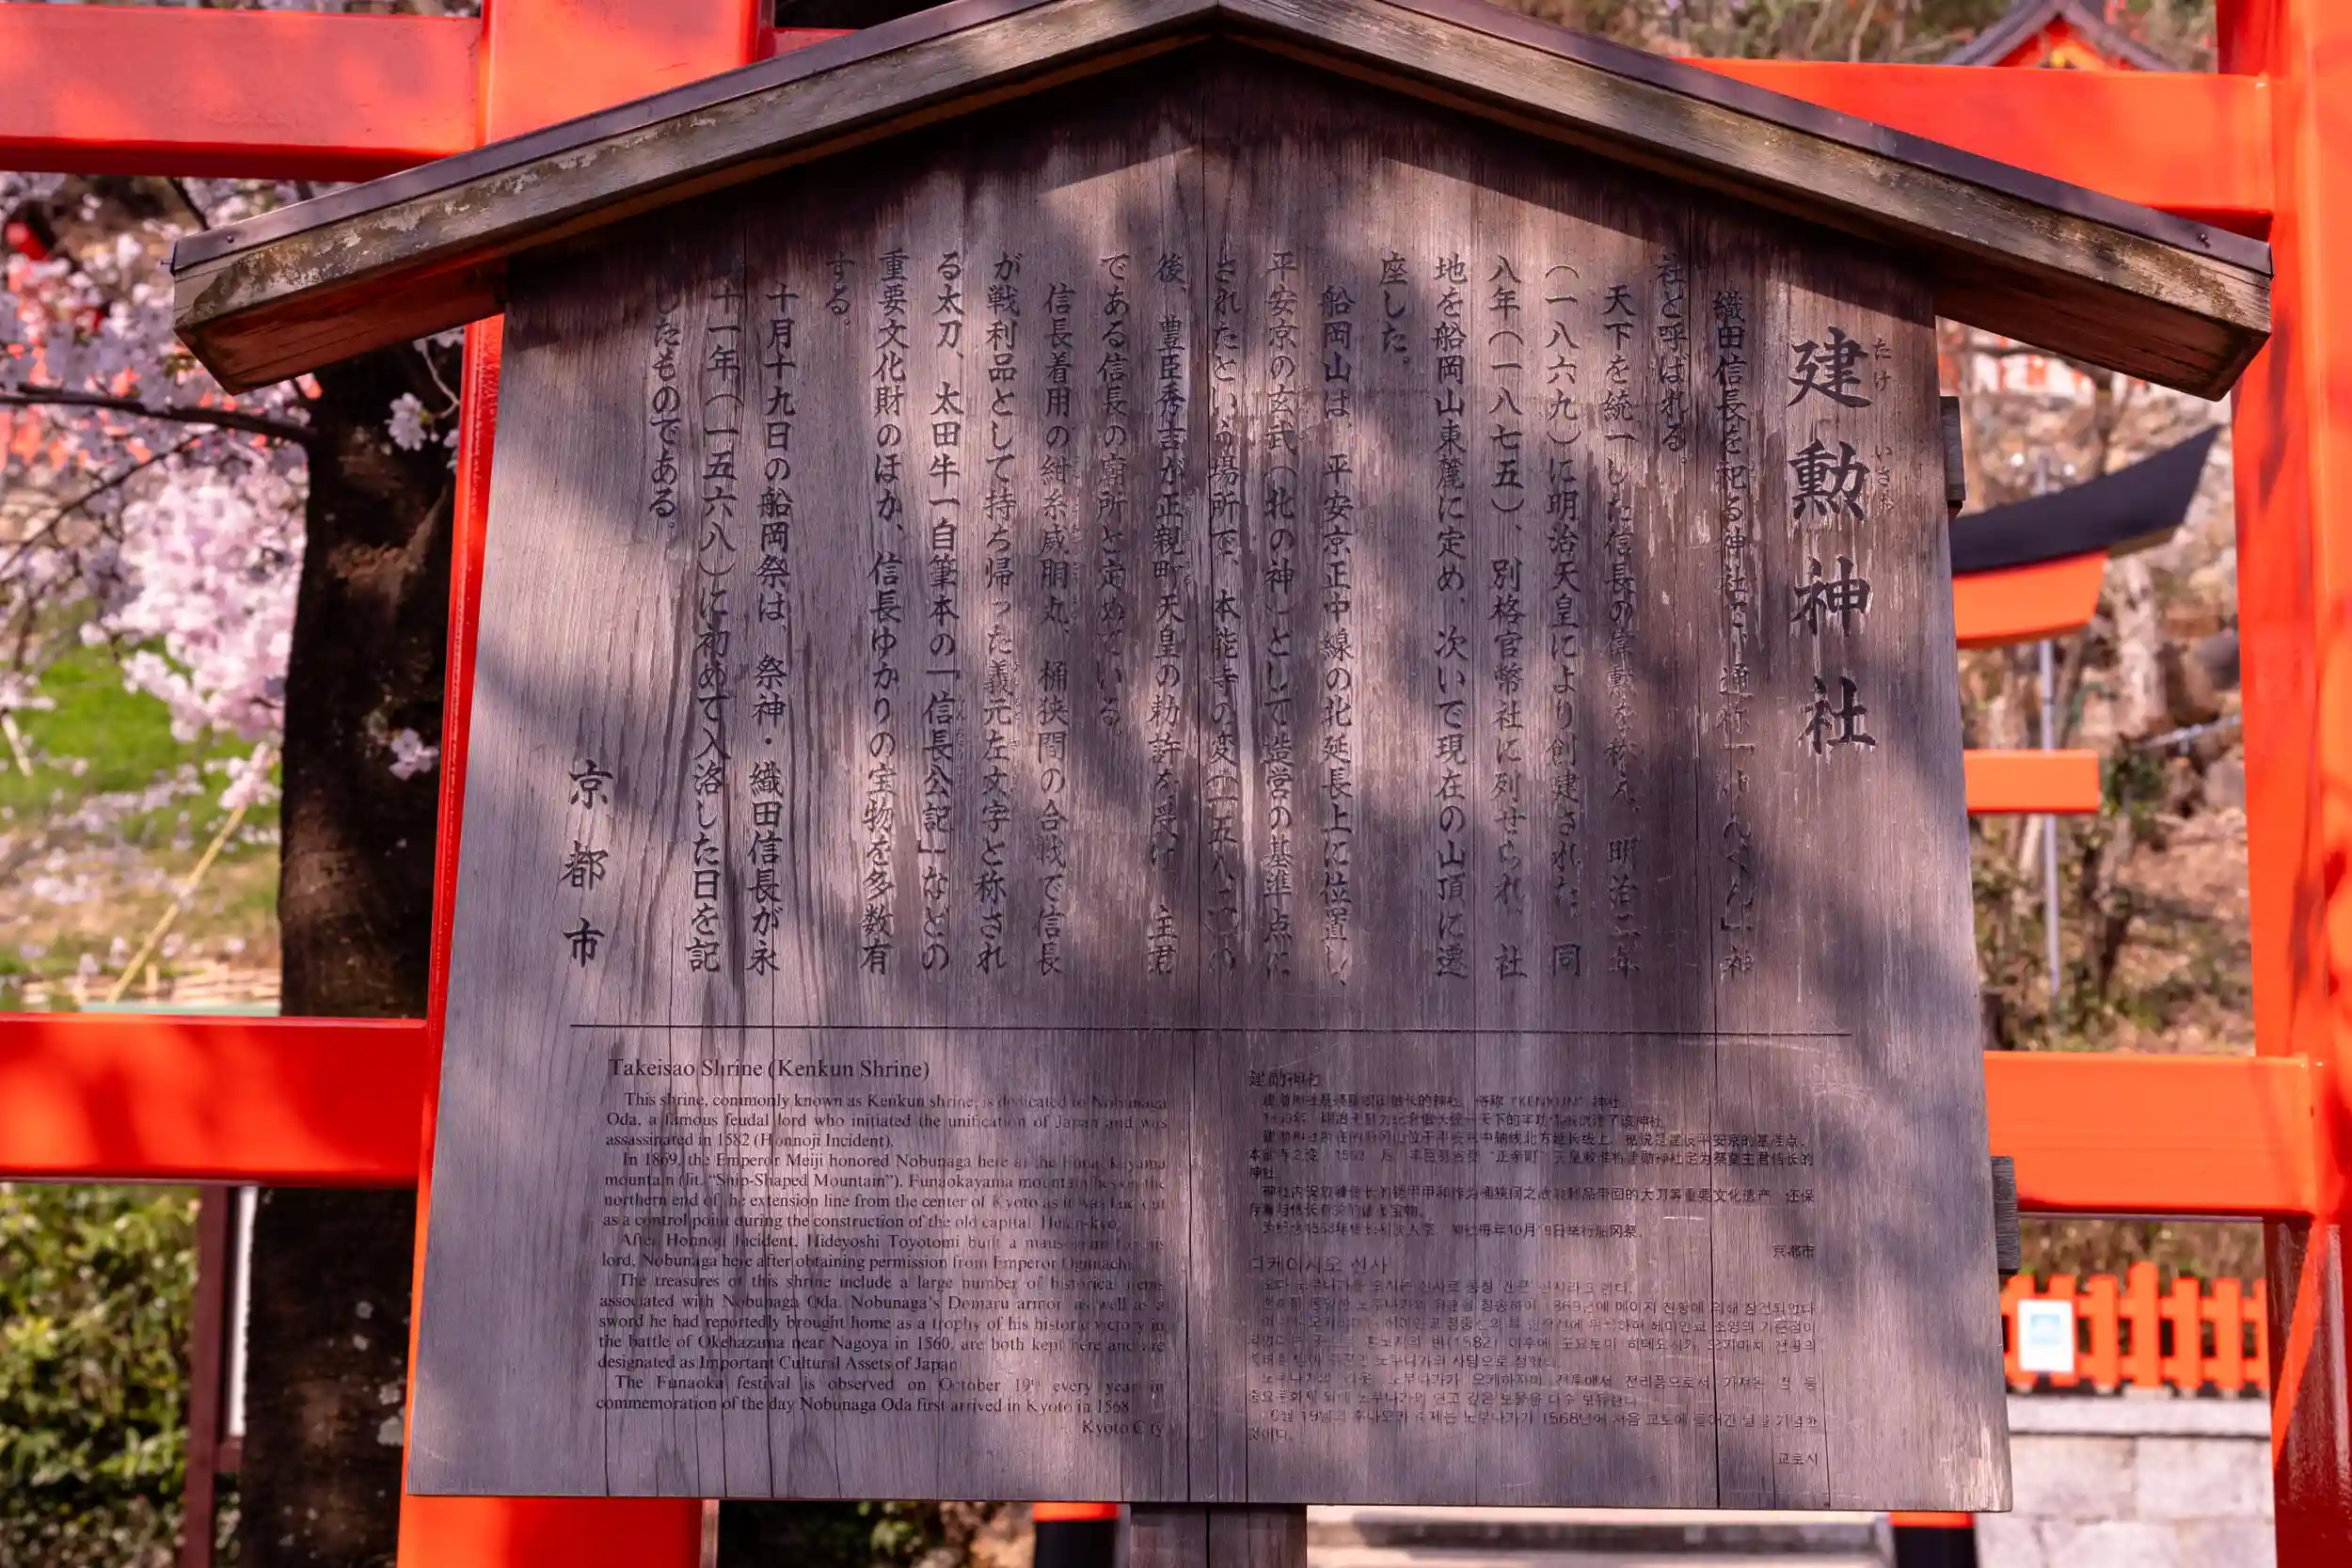 建勲神社
たけ いさお
織田信長を祀る神社で、通称「けんくん」神
社と呼ばれる。
天下を統一した信長の偉勲を称え、明治二年
(一八六九)に明治天皇により創建された。同
八年(一八七五)、別格官幣社に列せられ、社
地を船岡山東麓に定め、次いで現在の山頂に遷
座した。
船岡山は、平安京正中線の北延長上に位置し、
平安京の玄武(北の神)として造営の基準点に
されたという場所で、本能寺の変(一五八二)の
後、豊臣秀吉が正親町天皇の勅許を受け、主君
である信長の廟所と定めている。
信長着用の紺糸威胴丸、桶狭間の合戦で信長
が戦利品として持ち帰った義元左文字と称され
る太刀、太田牛一自筆本の「信長公記」などの
重要文化財のほか、信長ゆかりの宝物を多数有
する。
十月十九日の船岡祭は、祭神・織田信長が永
十一年(一五六八)に初めて入洛した日を記
したものである。
京都市
Takeisao Shrine (Kenkun Shrine)
This shrine, commonly known as Kenkun shrine, is dedicated to Nobunaga
Oda, a famous feudal lord who initiated the unification of Japan and was
assassinated in 1582 (Honnoji Incident).
In 1869, the Emperor Meiji honored Nobunaga here at the Funaokayama
mountain (lit. "Ship-Shaped Mountain"). Funaokayama mountain lies on the
northern end of the extension line from the center of Kyoto as it was laid out
as a control point during the construction of the old capital, Heian-kyo.
After Honnoji Incident, Hideyoshi Toyotomi built a mausoleum for his
lord, Nobunaga here after obtaining permission from Emperor Ogimachi.
The treasures of this shrine include a large number of historical items
associated with Nobunaga Oda. Nobunaga's Domaru armor as well as a
sword he had reportedly brought home as a trophy of his historic victory in
the battle of Okehazama near Nagoya in 1560, are both kept here and are
designated as Important Cultural Assets of Japan
The Funaoka festival is observed on October 19th every year in
commemoration of the day Nobunaga Oda first arrived in Kyoto in 1568
Kyoto City
建勋神社
俗称"KENKUN"神社
神社
神社内安放着信长的铠甲和作为桶狭间之战战利品带回的大刀等重要文化遗产 还保
为纪念1568年信长初次入京,神社每年10月19日举行船冈祭
京都市
타케이사오 신사
1869년에 메이지 천황에 의해 창건되었다
1568년에 처음 교토에 들어간 날을 기념한
것이다.
교토시